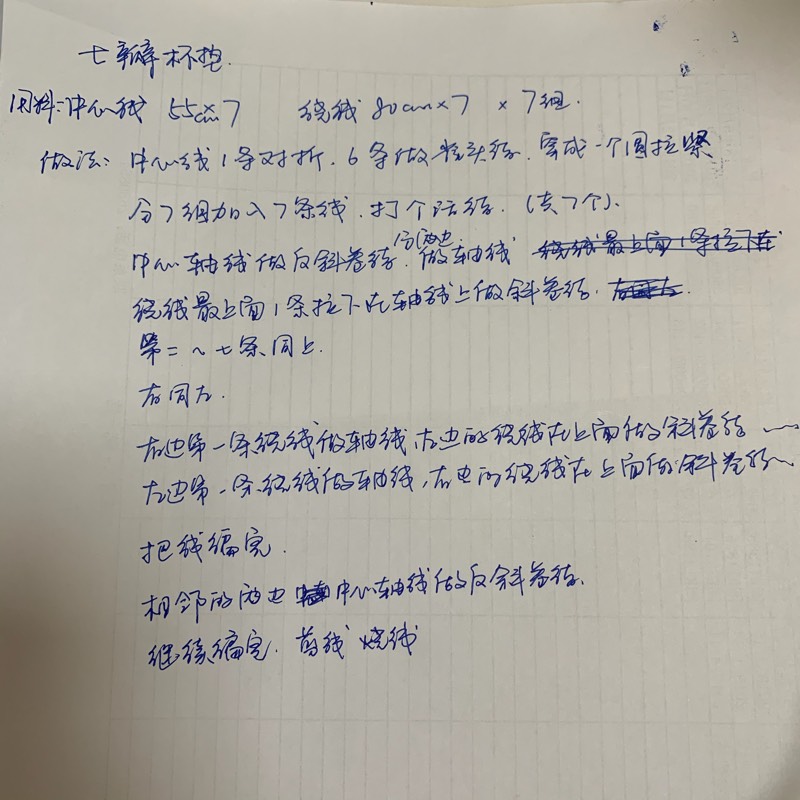 七瓣杯垫.
用料:中心线 55cm×7 绕线 80cm×7 ×7组.
做法: 中心线1条对折. 6条做雀头结. 穿成一个圆拉紧
分7组加入7条线. 打个活结. (共7个).
中心轴线做反斜卷结. 分两边 做轴线 绕线最上面1条拉下在
绕线最上面1条拉下在轴线上做斜卷结. 右同左.
第二~七条同上.
右同左.
右边第一条绕线做轴线, 左边的绕线在上面做斜卷结 ~
左边第一条绕线做轴线, 右边的绕线在上面做斜卷结~
把线编完.
相邻的两边 中心轴线做反斜卷结.
继续编完. 剪线 烧线